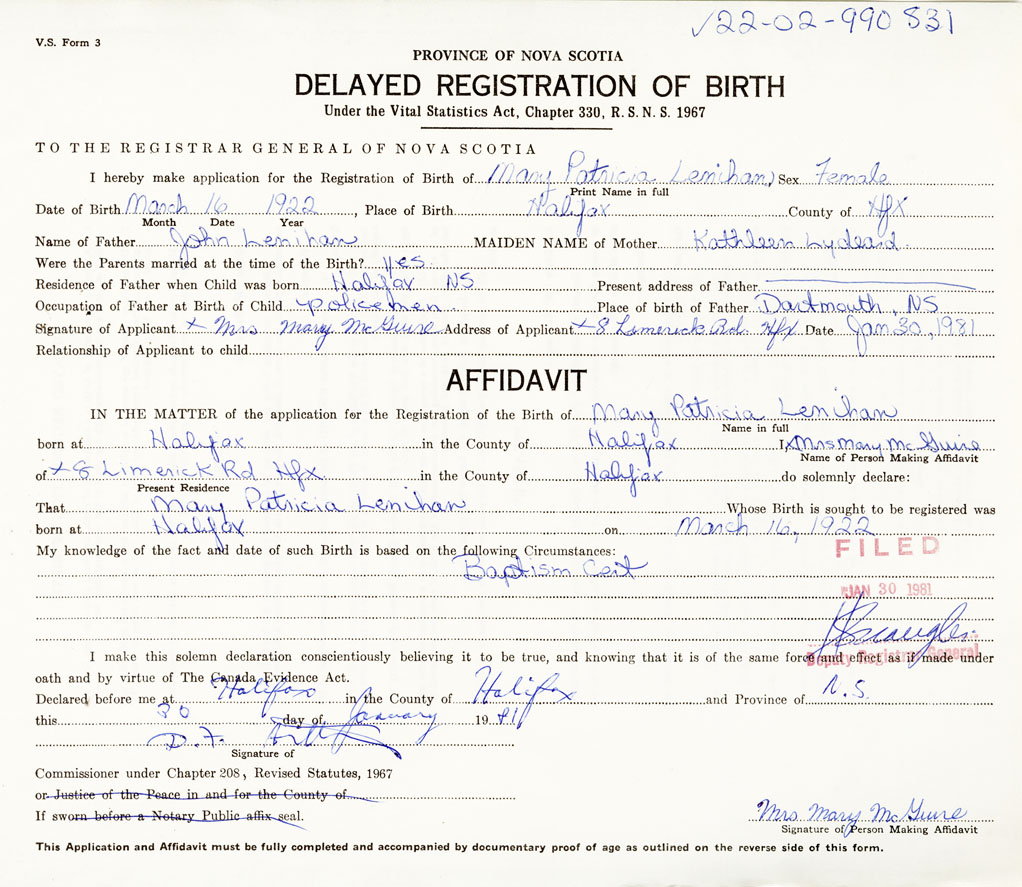 √22-02-990831
V.S. Form 3
PROVINCE OF NOVA SCOTIA
DELAYED REGISTRATION OF BIRTH
Under the Vital Statistics Act, Chapter 330, R.S.N.S. 1967
TO THE REGISTRAR GENERAL OF NOVA SCOTIA
I hereby make application for the Registration of Birth of Mary Patricia Lenihan, Sex Female
Print Name in full
Date of Birth March 16 1922, Place of Birth Halifax County of Hfx
Month Date Year
Name of Father John Lenihan MAIDEN NAME of Mother Kathleen Lydeard
Were the Parents married at the time of the Birth? yes
Residence of Father when Child was born Halifax NS Present address of Father
Occupation of Father at Birth of Child policemen Place of birth of Father Dartmouth, NS
Signature of Applicant x Mrs Mary McGuire Address of Applicant x 8 Limerick Rd. Hfx Date Jan 30, 1981
Relationship of Applicant to child
AFFIDAVIT
IN THE MATTER of the application for the Registration of the Birth of Mary Patricia Lenihan
Name in full
born at Halifax in the County of Halifax I, x Mrs Mary McGuire
Name of Person Making Affidavit
of x 8 Limerick Rd Hfx in the County of Halifax do solemnly declare:
Present Residence
That Mary Patricia Lenihan Whose Birth is sought to be registered was
born at Halifax on March 16, 1922
My knowledge of the fact and date of such Birth is based on the following Circumstances:
FILED
Baptism Cert
JAN 30 1981
Deputy Registrar General
I make this solemn declaration conscientiously believing it to be true, and knowing that it is of the same force and effect as if made under
oath and by virtue of The Canada Evidence Act.
Declared before me at Halifax in the County of Halifax and Province of N.S.
this 30 day of January 1981
D. F.
Signature of
Commissioner under Chapter 208, Revised Statutes, 1967
or Justice of the Peace in and for the County of
If sworn before a Notary Public affix seal.
Mrs Mary McGuire
Signature of Person Making Affidavit
This Application and Affidavit must be fully completed and accompanied by documentary proof of age as outlined on the reverse side of this form.